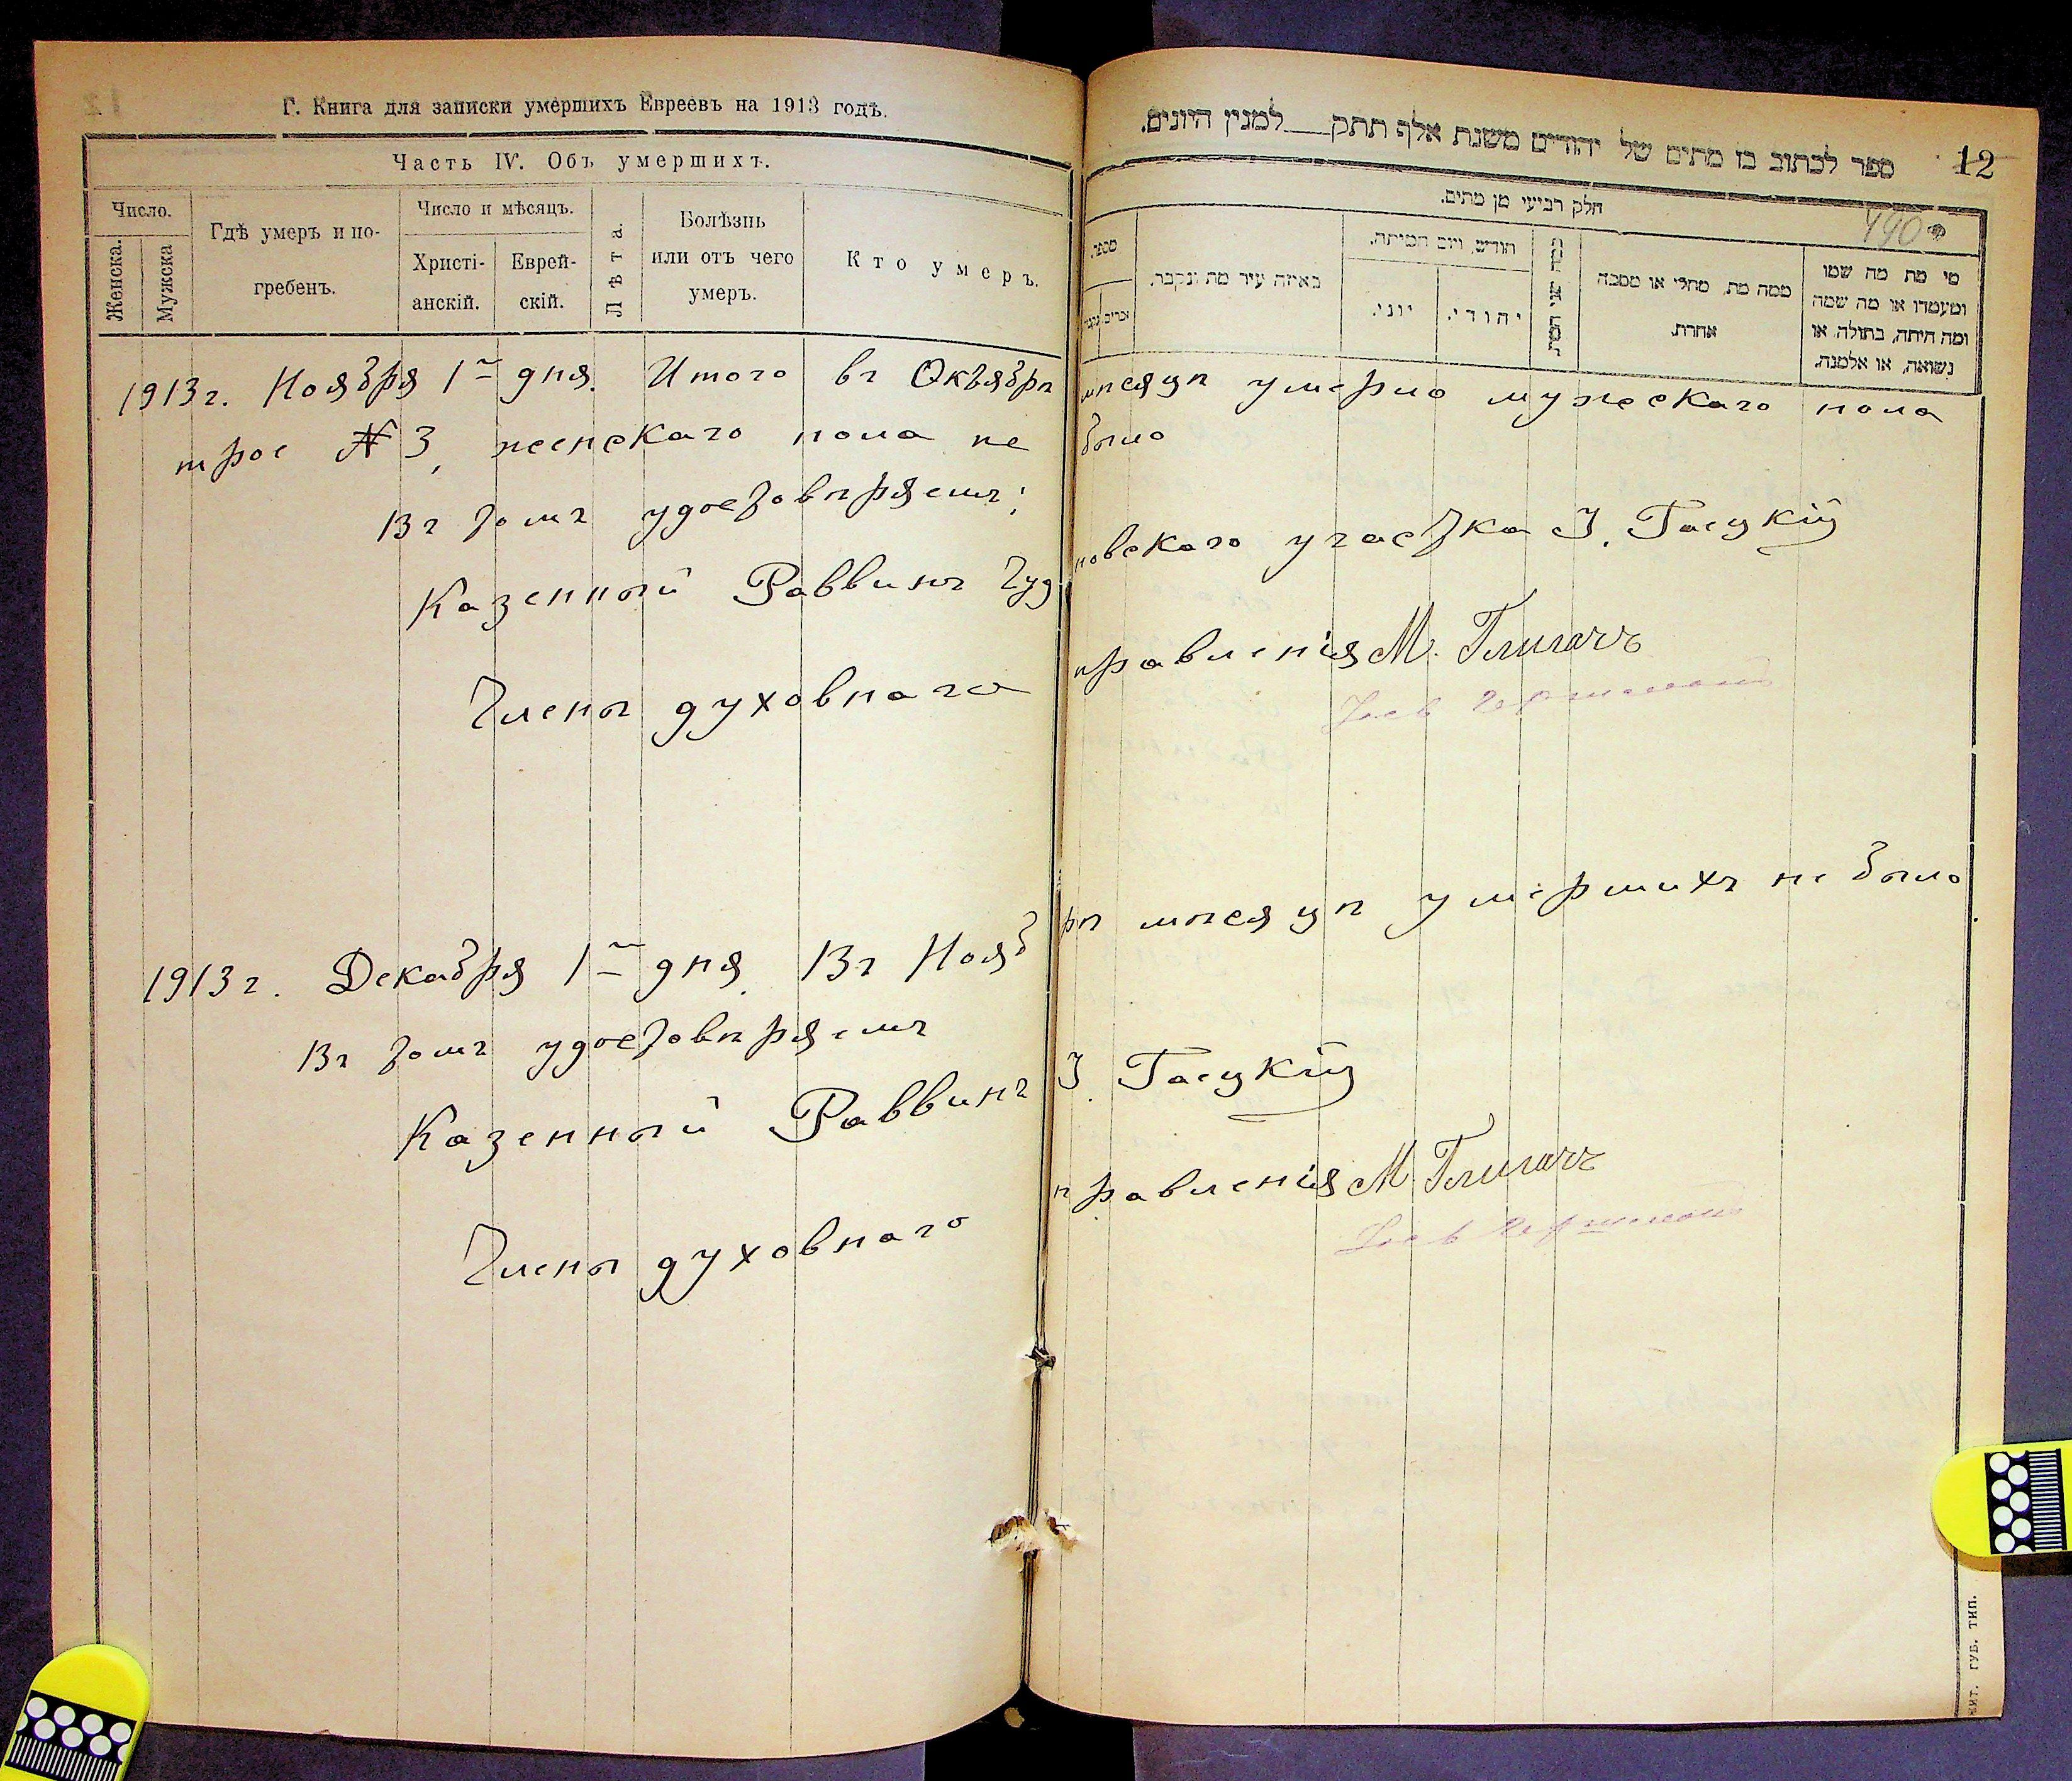 Г. Книга для записки умершихъ Евреевъ на 1913 годъ.
Часть IV. Объ умершихъ.
Число.
Женска.
Мужска
Гдѣ умеръ и по-
гребенъ.
Число и мѣсяцъ.
Христі-
анскій.
Еврей-
скій.
Лѣта.
Болѣзнь
или отъ чего
умеръ.
Кто умеръ.
ספר לכתוב בו מתים של יהודים משנת אלף תתק למנין היונים.
12
חלק רביעי מן מתים.
490
מספר
באיזה עיר מת ונקבר.
חודש, ויום המיתה.
יוני.
יהודי.
ממה מת, מחלי או מסבה
אחרת.
מי מת מה שמו
ומעמדו או מה שמה
ומה היתה, בתולה או
נשואה, או אלמנה.
1913 г. Ноября 1го дня. Итого въ Октябрѣ мѣсяцѣ умерло мужескаго пола
трое № 3, женскаго пола не было
Въ томъ удостовѣряемъ:
Казенный Раввинъ Чудновскаго участка І. Гасцкій
Члены духовнаго правленія М. Глигачъ
1913 г. Декабря 1го дня. Въ Ноябрѣ мѣсяцѣ умершихъ не было
Въ томъ удостовѣряемъ
Казенный Раввинъ І. Гасцкій
Члены духовнаго правленія М. Глигачъ
ЖИТ. ГУБ. ТИП.